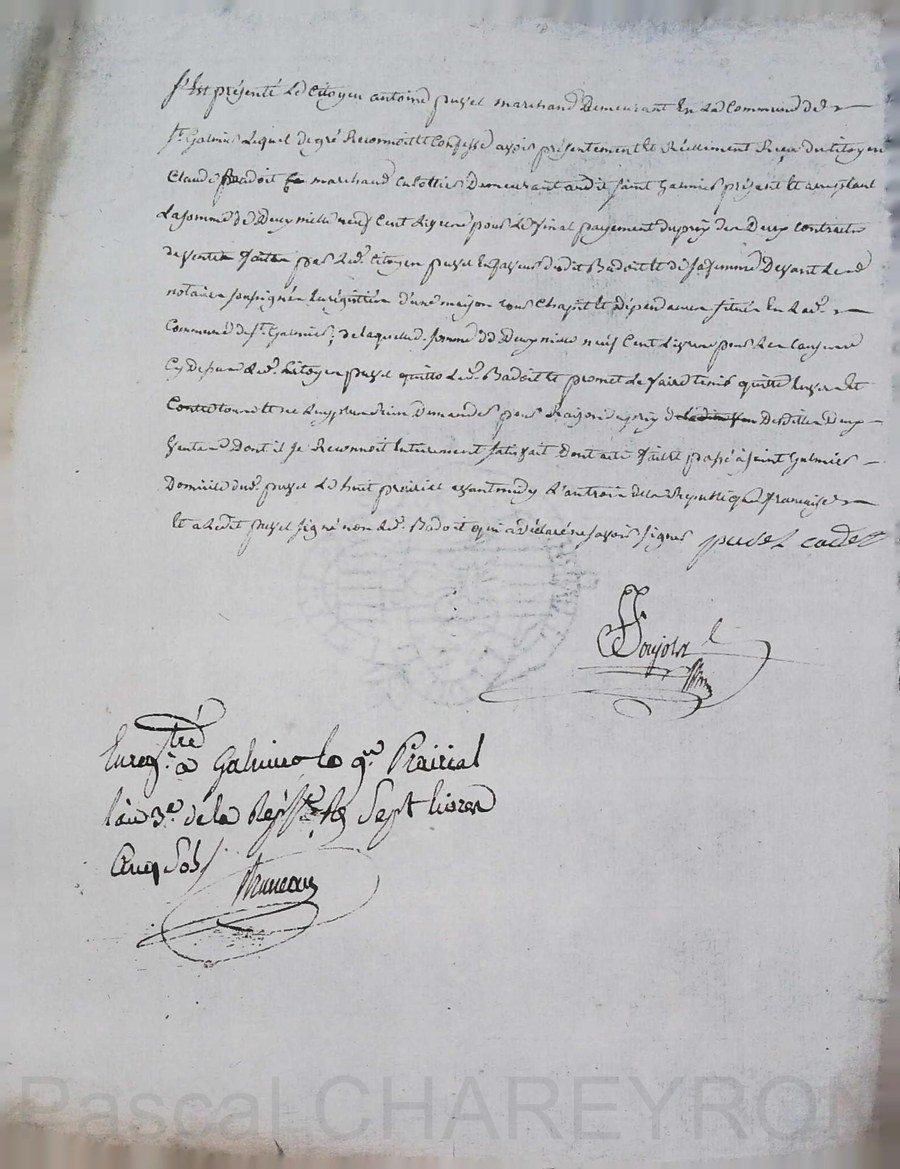 S'est présenté le Citoyen antoine puzel marchand Demeurant En La Commune de
St. Galmier Lequel de gré Reconnoit et Confesse avoir présentement et Réellement Reçu du Citoyen
Claude Badoit marchand Culottier Demeurant audit Saint Galmier présent et acceptant
La somme de Deux mille neuf Cent Livres pour Le final payement du prix des Deux contrats
de vente faites par Led. Citoyen puzel En faveur dudit Badoit et de sa femme Devant Le
notaire soussigné Enregistrés d'une maison et Dépendances située En Lad.
Commune de St. Galmier, de laquelle somme de Deux mille neuf Cent Livres pour Les causes
Cy dessus Led. Citoyen puzel quitte Led. Badoit et promet de faire tenir quitte Envers et
Contre tous et ne Luy Rien Demander pour Raison du prix Desdittes Deux
Ventes Dont il se Reconnoit Entierement satisfait Dont acte fait et passé à Saint Galmier
Domicile dud. puzel Le huit prairial avant midy L'an trois de la République française
Et a Ledit puzel signé non Led. Badoit qui a Déclaré ne savoir signer puzel cadet
Enregtré. a Galmier le 9e. Prairial
l'an 3e. de la Répque. Rç Sept livres
Cinq Sols
Bruneau
Pascal CHAREYRON